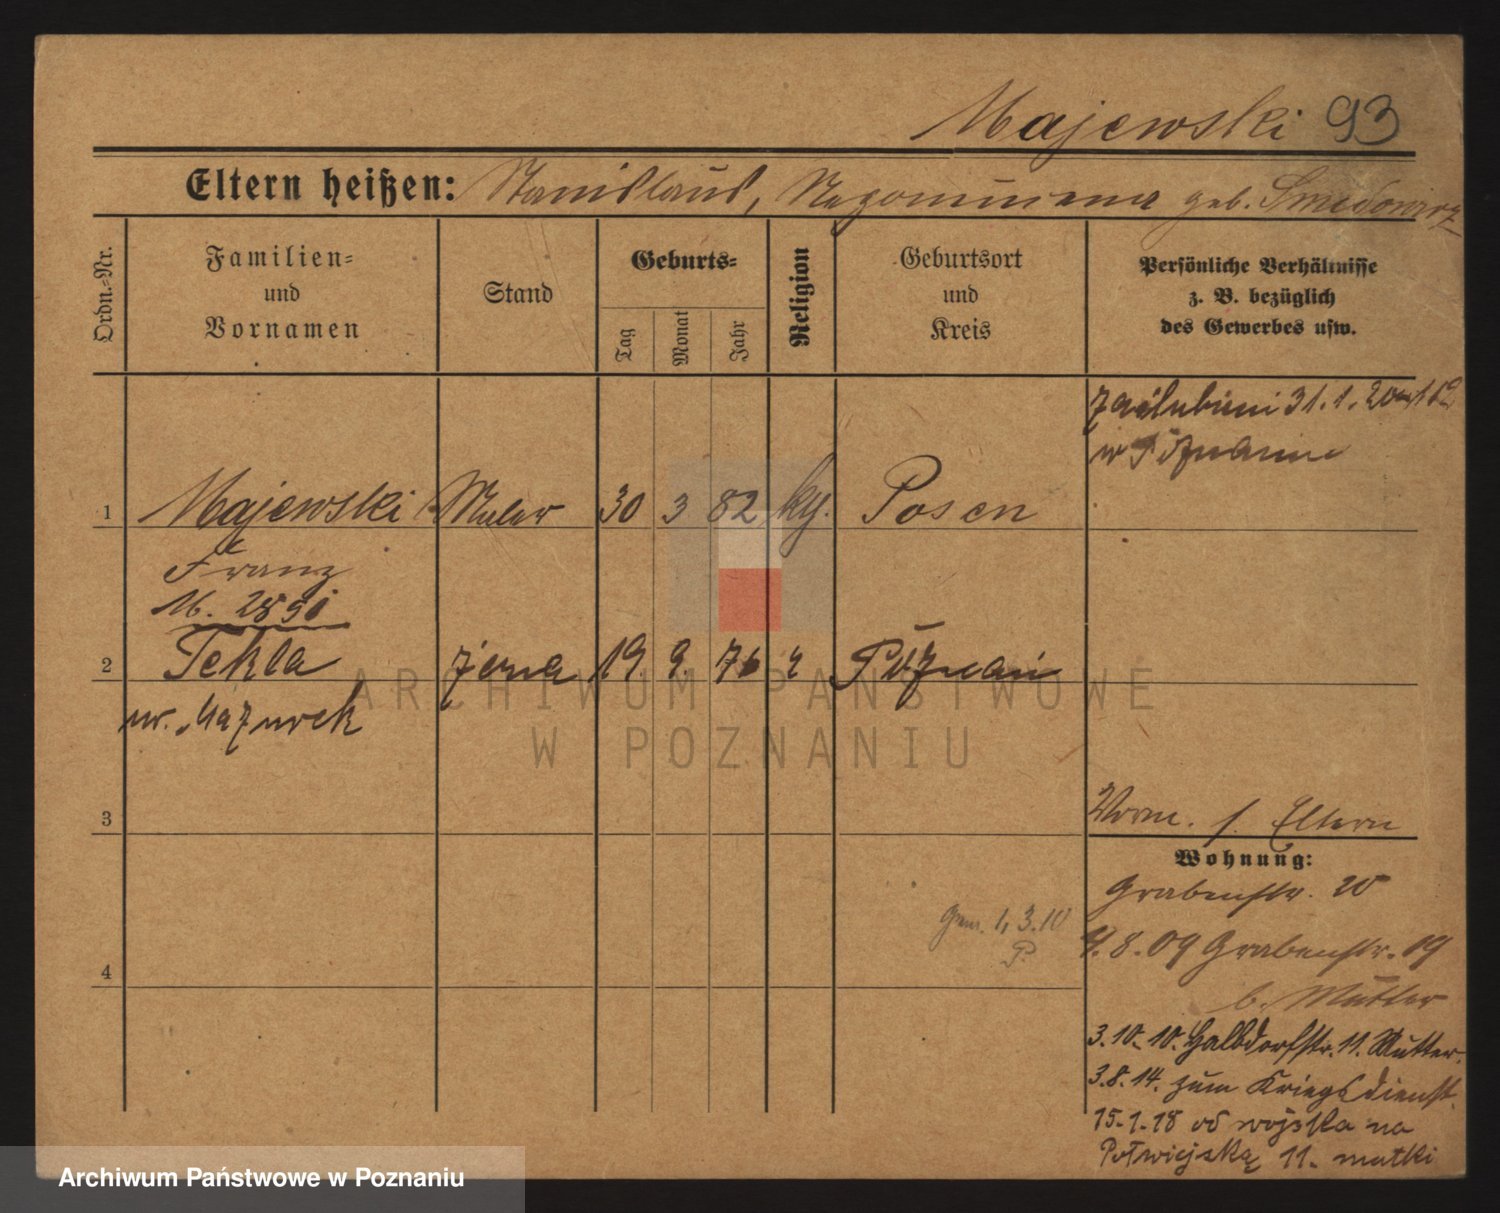 Majewski 93
Eltern heißen: Stanislaus, Nepomucena geb.
Ordn.=Nr.
Familien=
und
Vornamen
Stand
Geburts=
Tag
Monat
Jahr
Religion
Geburtsort
und
Kreis
Persönliche Verhältnisse
z. B. bezüglich
des Gewerbes usw.
zaślubieni 31.1.20
w Poznaniu
1 Majewski Maler 30 3 82 kath. Posen
Franz
M.
2 Tekla żona 19. 9. 76 Poznań
ur. Mazurek
3
Vorm. s. Eltern
Wohnung:
Grabenstr. 20
Gem. 1.3.10
P.
9.8.09 Grabenstr. 19
4
b. Mutter
3.10.10. Halbdorfstr. 11. Mutter.
3.8.14. zum Kriegsdienst.
15.1.18 od wojska na
Półwiejską 11. matki
ARCHIWUM PAŃSTWOWE
W POZNANIU
Archiwum Państwowe w Poznaniu